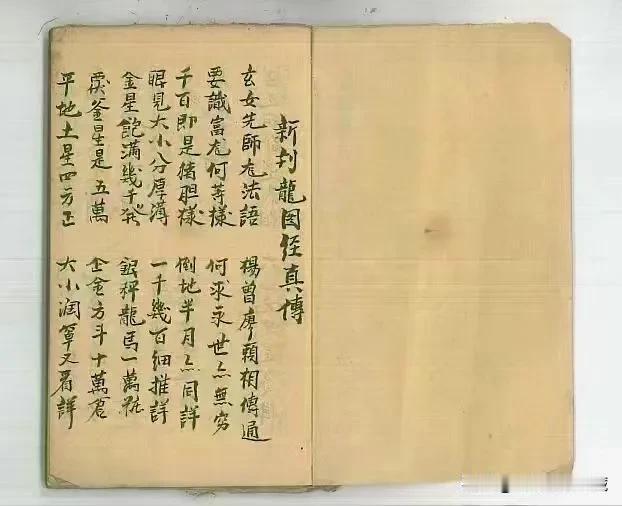 新刊龍图经真傳
玄女先師尨法語 楊曾廖賴相傳通
要識富尨何等樣 何求永世亦無穷
千百即是猪胆樣 倒地半月亦同詳
眼見大小分厚薄 一千幾百細推詳
金星飽滿幾千 銀秤龍馬一萬
覆釜星是五萬 金方斗十萬
平地土星四方正 大小润又看詳